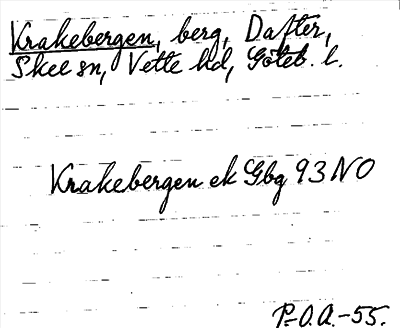 Krakebergen, berg, Dafter,
Skee sn, Vette hd, Göteb. l.
Krakebergen ek Gbg 93 NO
P-O.A.-55.